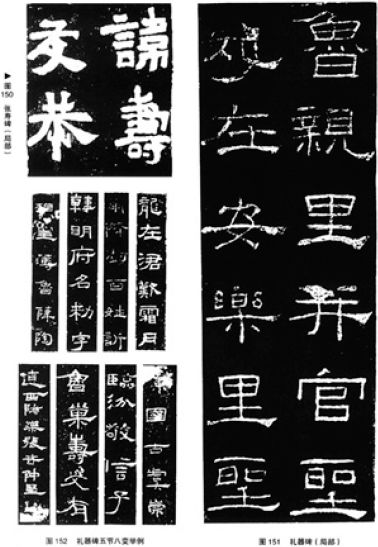 諱壽
友恭
▶图150 张寿碑（局部）
魯親里并官聖
妃在安樂里聖
龍在涒歎霜月
雨降澍百姓訢
韓明府名勑字
魯薛陶
國古
臨汾敬信子
魯巢壽受有
图 152 礼器碑五节八变举例
图 151 礼器碑（局部）